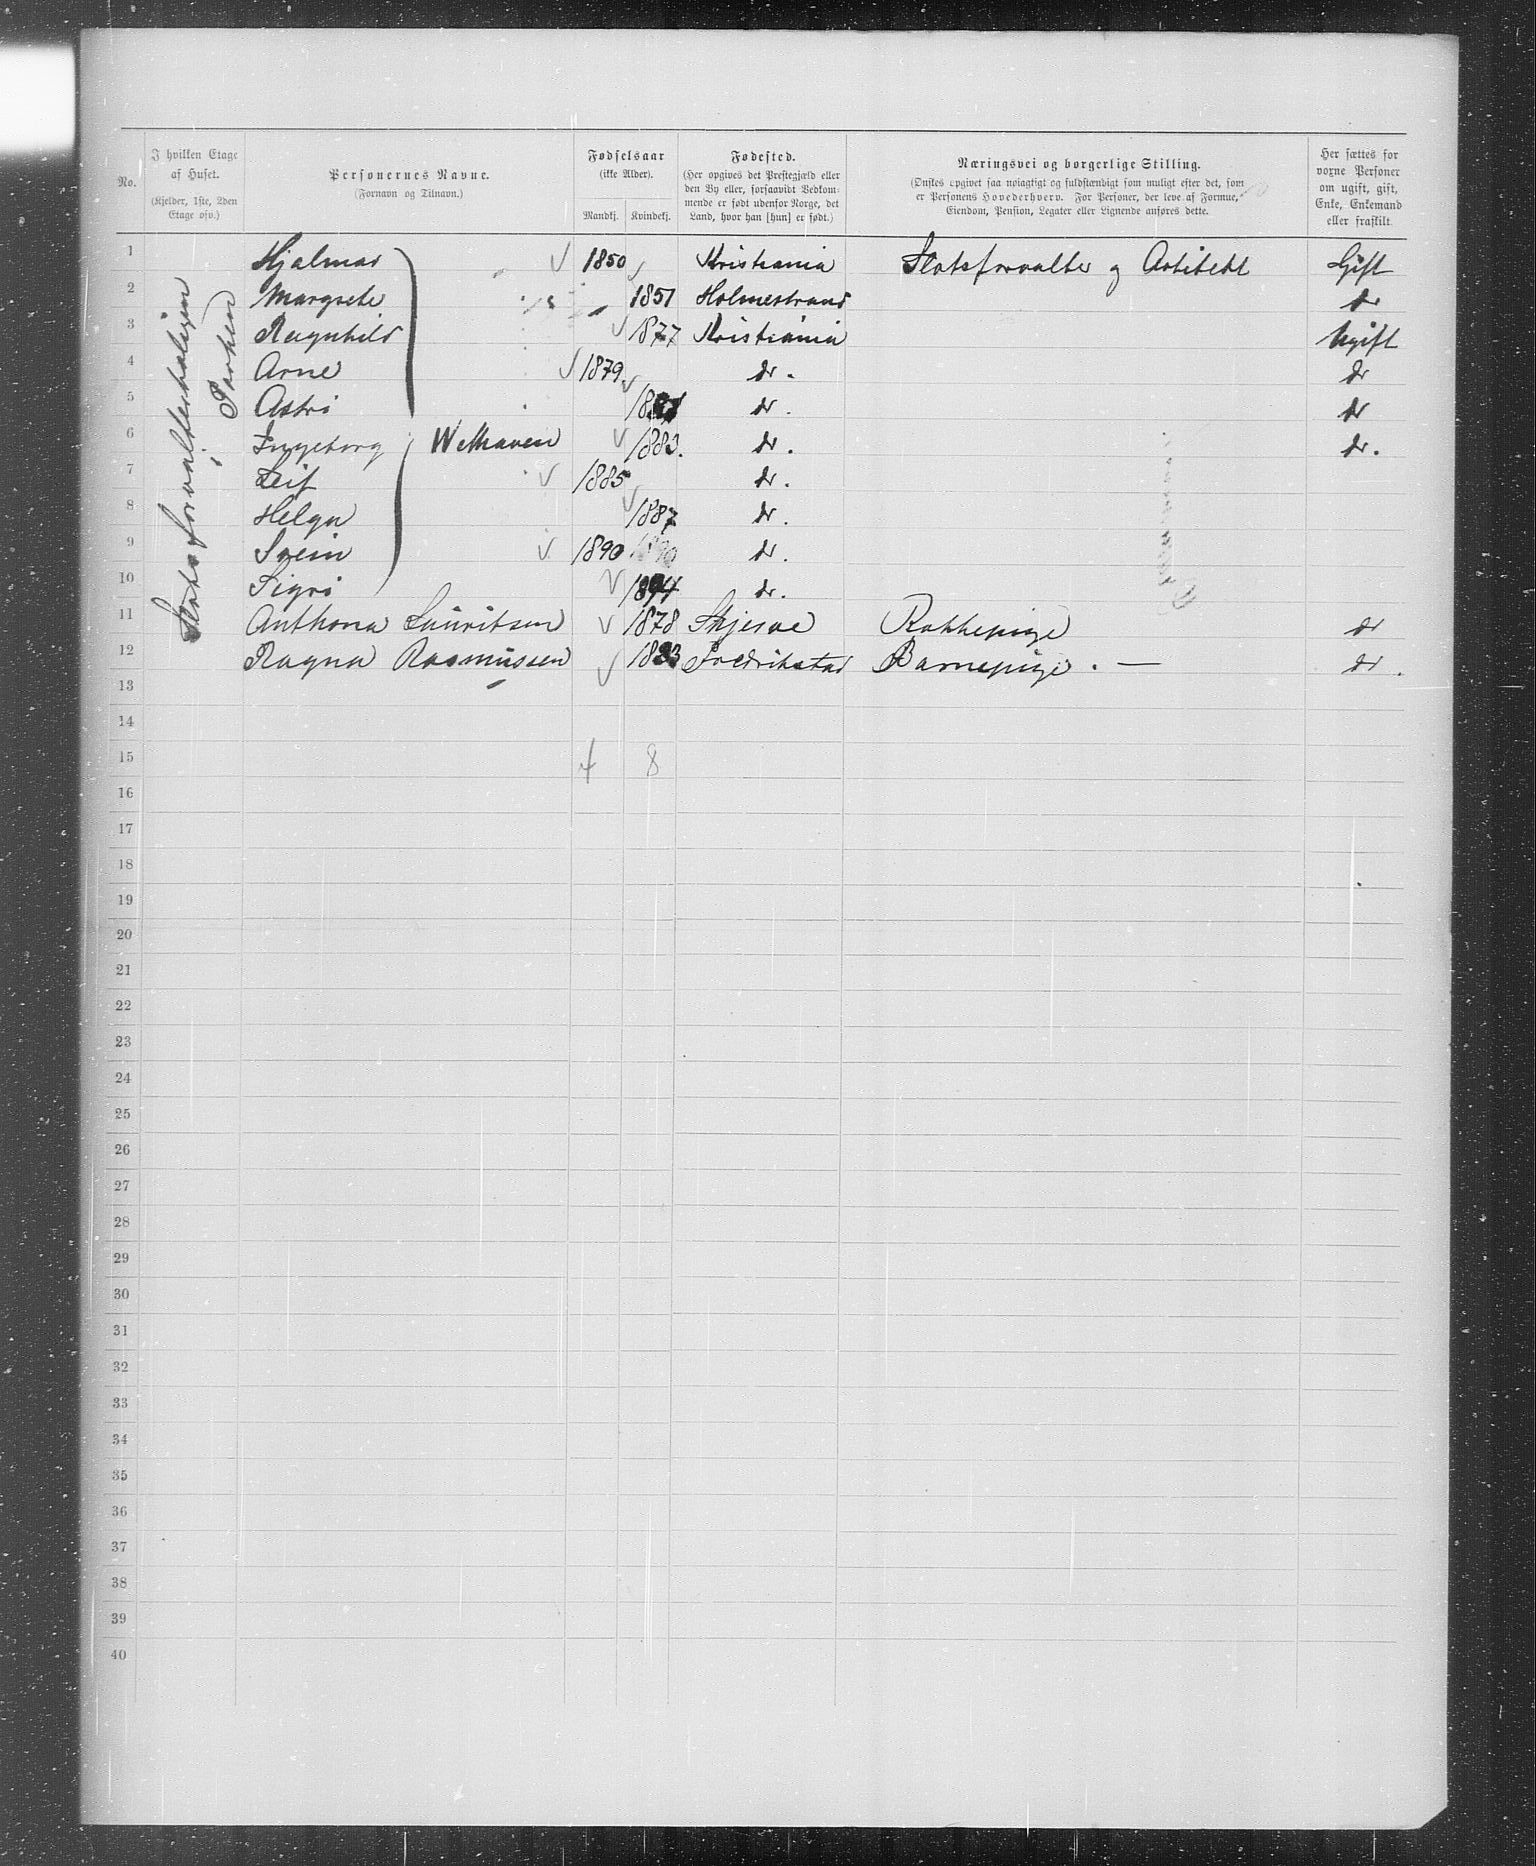 No.
I hvilken Etage af Huset.
(Kjelder, 1ste, 2den Etage osv.)
Personernes Navne.
(Fornavn og Tilnavn.)
Fødselsaar
(ikke Alder).
Mandkj. Kvindekj.
Fødested.
(Her opgives det Prestegjæld eller
den By eller, forsaavidt Vedkom-
mende er født udenfor Norge, det
Land, hvor han [hun] er født.)
Næringsvei og borgerlige Stilling.
(Ønskes opgivet saa nøiagtigt og fuldstændigt som muligt efter det, som
er Personens Hovederhverv. For Personer, der leve af Formue,
Eiendom, Pension, Legater eller Lignende anføres dette.
Her sættes for
voxne Personer
om ugift, gift,
Enke, Enkemand
eller fraskilt.
Slotsforvalterboligen
i Parken
1 Hjalmar 1850 Kristiania Slotsforvalter og Arkitekt Gift
2 Margrete 1851 Holmestrand do
3 Ragnhild 1877 Kristiania Ugift
4 Arne 1879 do. do
5 Astri do. do
6 Ingeborg Welhaven 1883. do. do.
7 Leif 1885 do.
8 Helga 1887 do.
9 Svein 1890 1890 do.
10 Sigri 1894 do.
11 Anthona Lauritsen 1878 Kokkepige do
12 Ragna Rasmussen 1883 Fredrikstad Barnepige. — do.
13
14
15 4 8
16
17
18
19
20
21
22
23
24
25
26
27
28
29
30
31
32
33
34
35
36
37
38
39
40